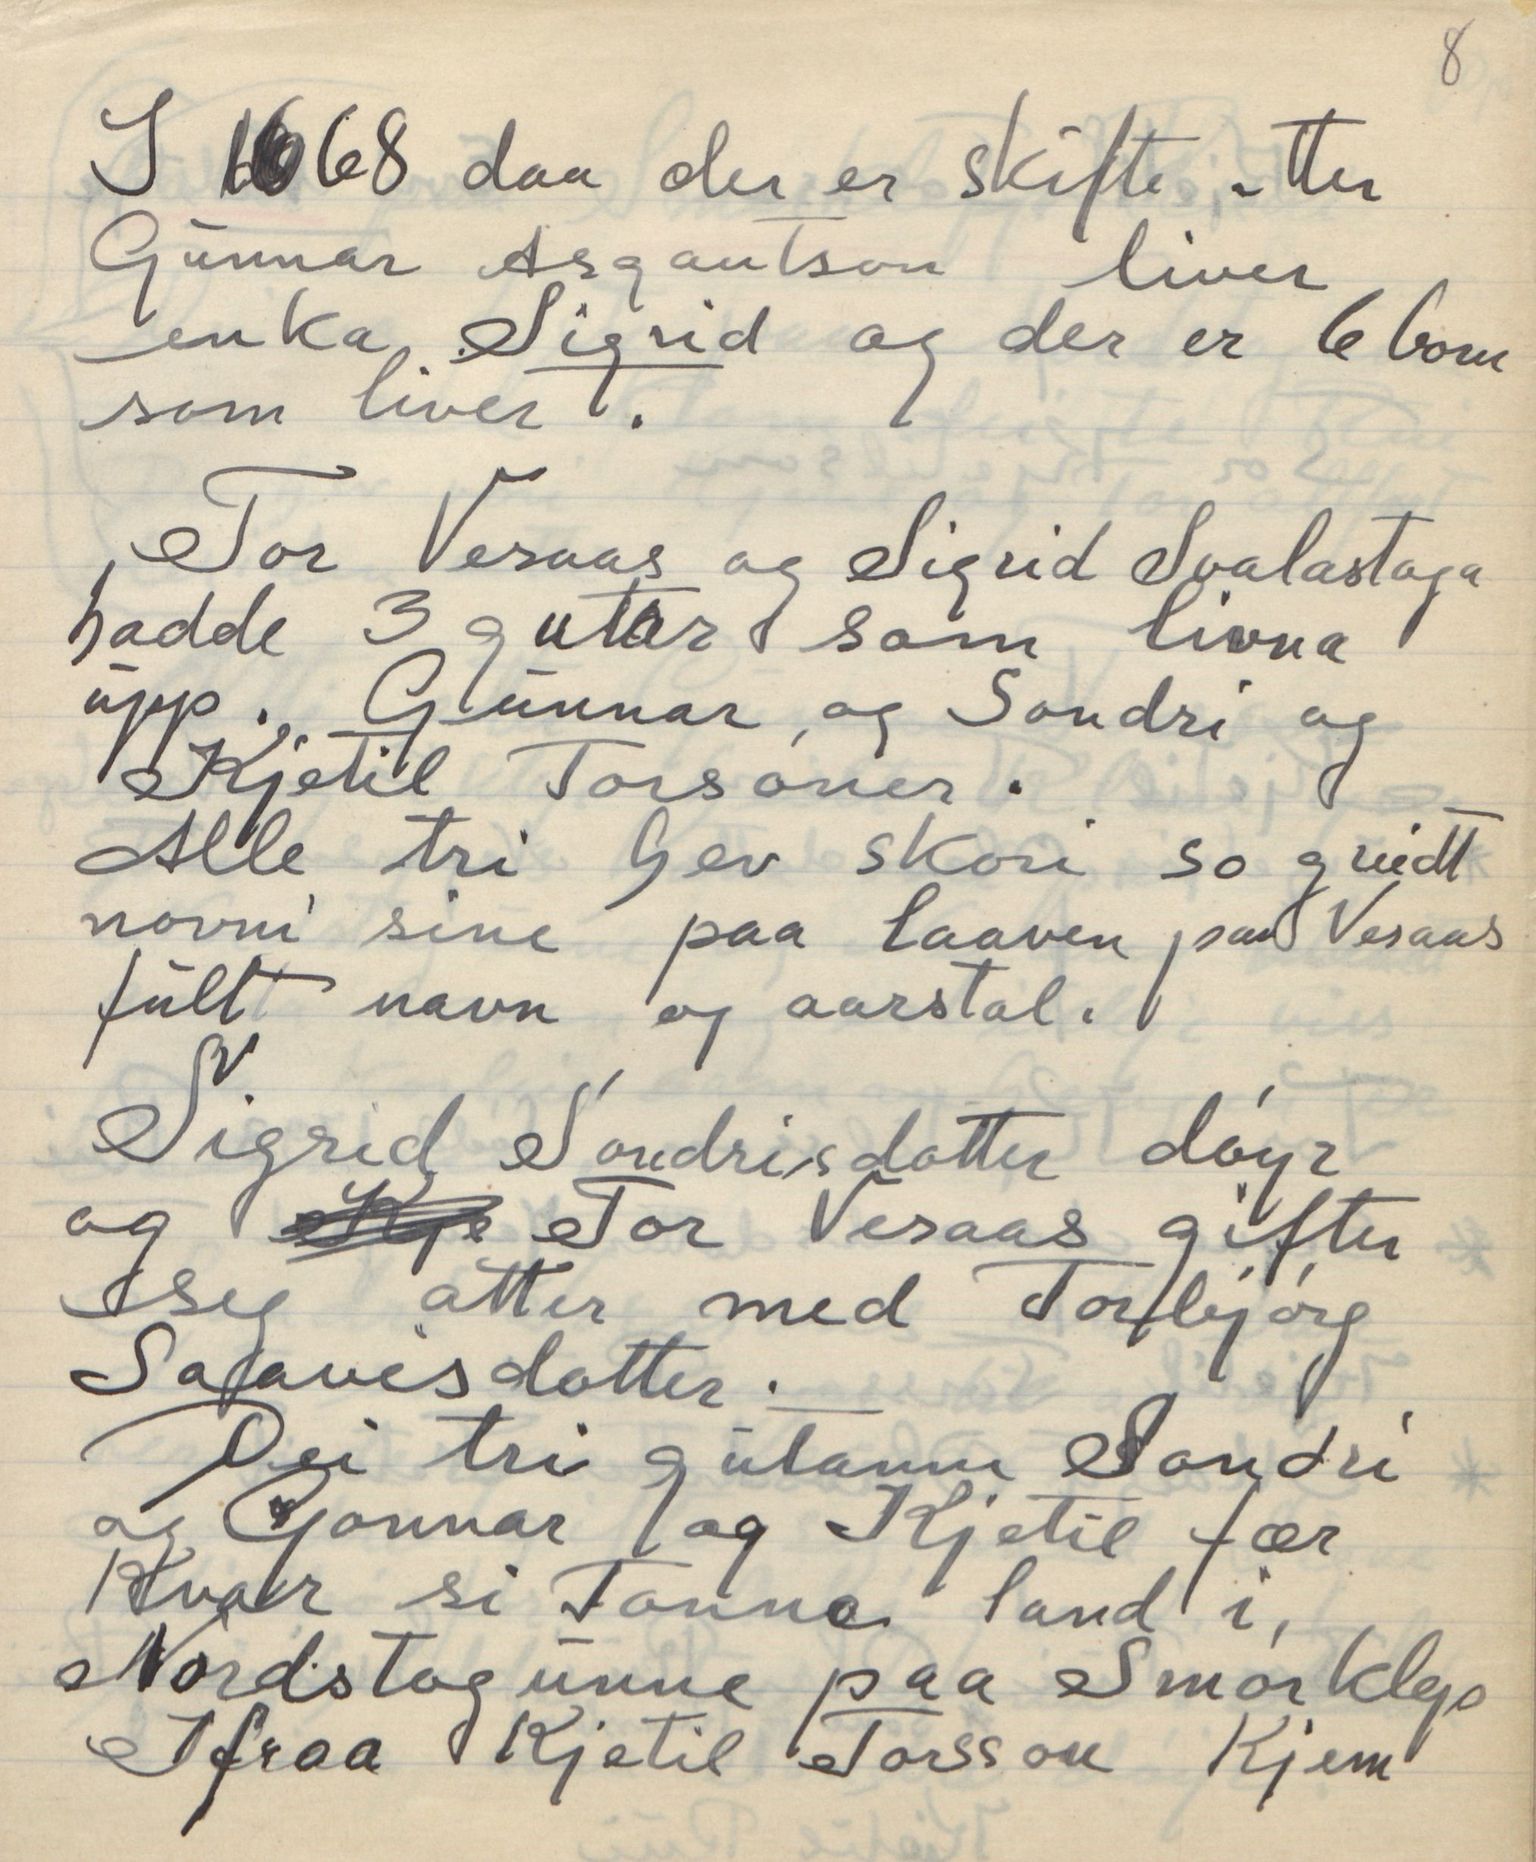 8
I 1668 daa der er skifte etter
Gunnar Asgautson liver
enka Sigrid og der er 6 born
som liver.
Tor Vesaas og Sigrid Svalastoga
hadde 3 gutar som livna
upp. Gunnar, og Sondri og
Kjetil Torsóner.
Alle tri hev skori so greidt
novni sine paa laaven paa Vesaas
fult navn og aarstal.
Sigrid Sondrisdotter dóyr
og Tor Vesaas gifter
seg atter med Torbjórg
Salavesdotter.
Dei tri gutanne Sondri
og Gonnar og Kjetil fær
Kvar si Tonne land i
Nordstogunne paa Smórklep
Ifraa Kjetil Torsson Kjem